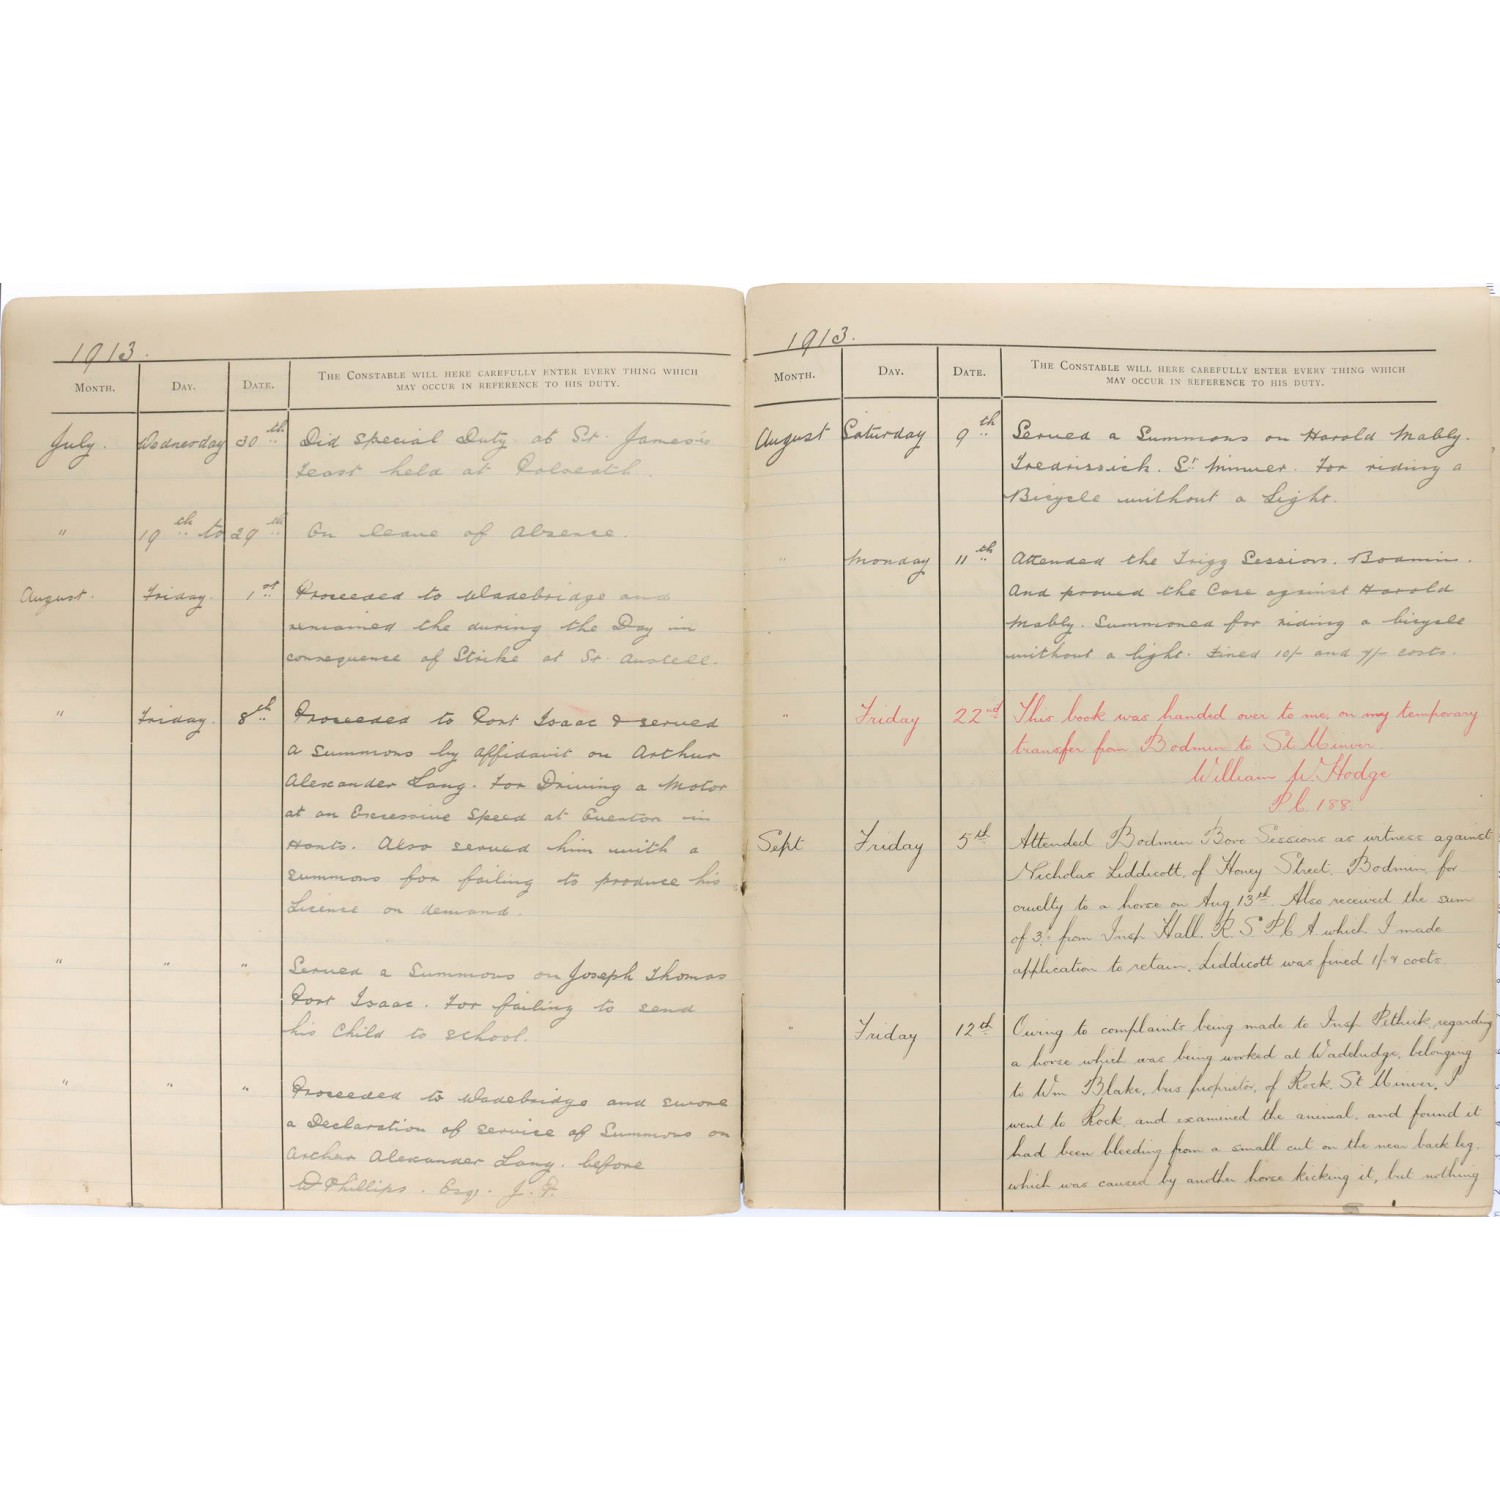 1913.
MONTH. DAY. DATE. THE CONSTABLE WILL HERE CAREFULLY ENTER EVERY THING WHICH
MAY OCCUR IN REFERENCE TO HIS DUTY.
July. Wednesday 30th Did special Duty at St. James's
Feast held at Polzeath.
" 19th to 29th On leave of Absence.
August. Friday. 1st Proceeded to Wadebridge and
remained the during the Day in
consequence of Strike at St. Austell.
" Friday. 8th Proceeded to Port Isaac & served
a summons by affidavit on Arthur
Alexander Lang. For Driving a Motor
at an Excessive Speed at in
Hants. Also served him with a
summons for failing to produce his
Licence on demand.
" " " Served a Summons on Joseph Thomas
Port Isaac. For failing to send
his Child to School.
" " " Proceeded to Wadebridge and swore
a Declaration of service of Summons on
Alexander Lang. before
W Phillips. Esq. J. P.
1913.
MONTH. DAY. DATE. THE CONSTABLE WILL HERE CAREFULLY ENTER EVERY THING WHICH
MAY OCCUR IN REFERENCE TO HIS DUTY.
August Saturday 9th Served a Summons on Harold Mably.
Tredrissick. St Minver. For riding a
Bicycle without a Light.
" Monday 11th Attended the Trigg Session. Bodmin.
And proved the Case against Harold
Mably. Summoned for riding a bicycle
without a light. Fined 10/- and 7/- costs.
" Friday 22nd This book was handed over to me, on my temporary
transfer from Bodmin to St Minver.
William W. Hodge
P.C. 188
Sept Friday 5th Attended Bodmin Boro Sessions as witness against
Nicholas Liddicott, of Honey Street, Bodmin, for
cruelty to a horse on Aug 13th. Also received the sum
of 3/- from Insp Hall. R. S P C A which I made
application to retain. Liddicott was fined 1/- & costs.
" Friday 12th Owing to complaints being made to Insp Pethick, regarding
a horse which was being worked at Wadebridge, belonging
to Wm Blake, bus proprietor, of Rock, St Minver, I
went to Rock, and examined the animal, and found it
had been bleeding from a small cut on the near back leg.
which was caused by another horse kicking it, but nothing